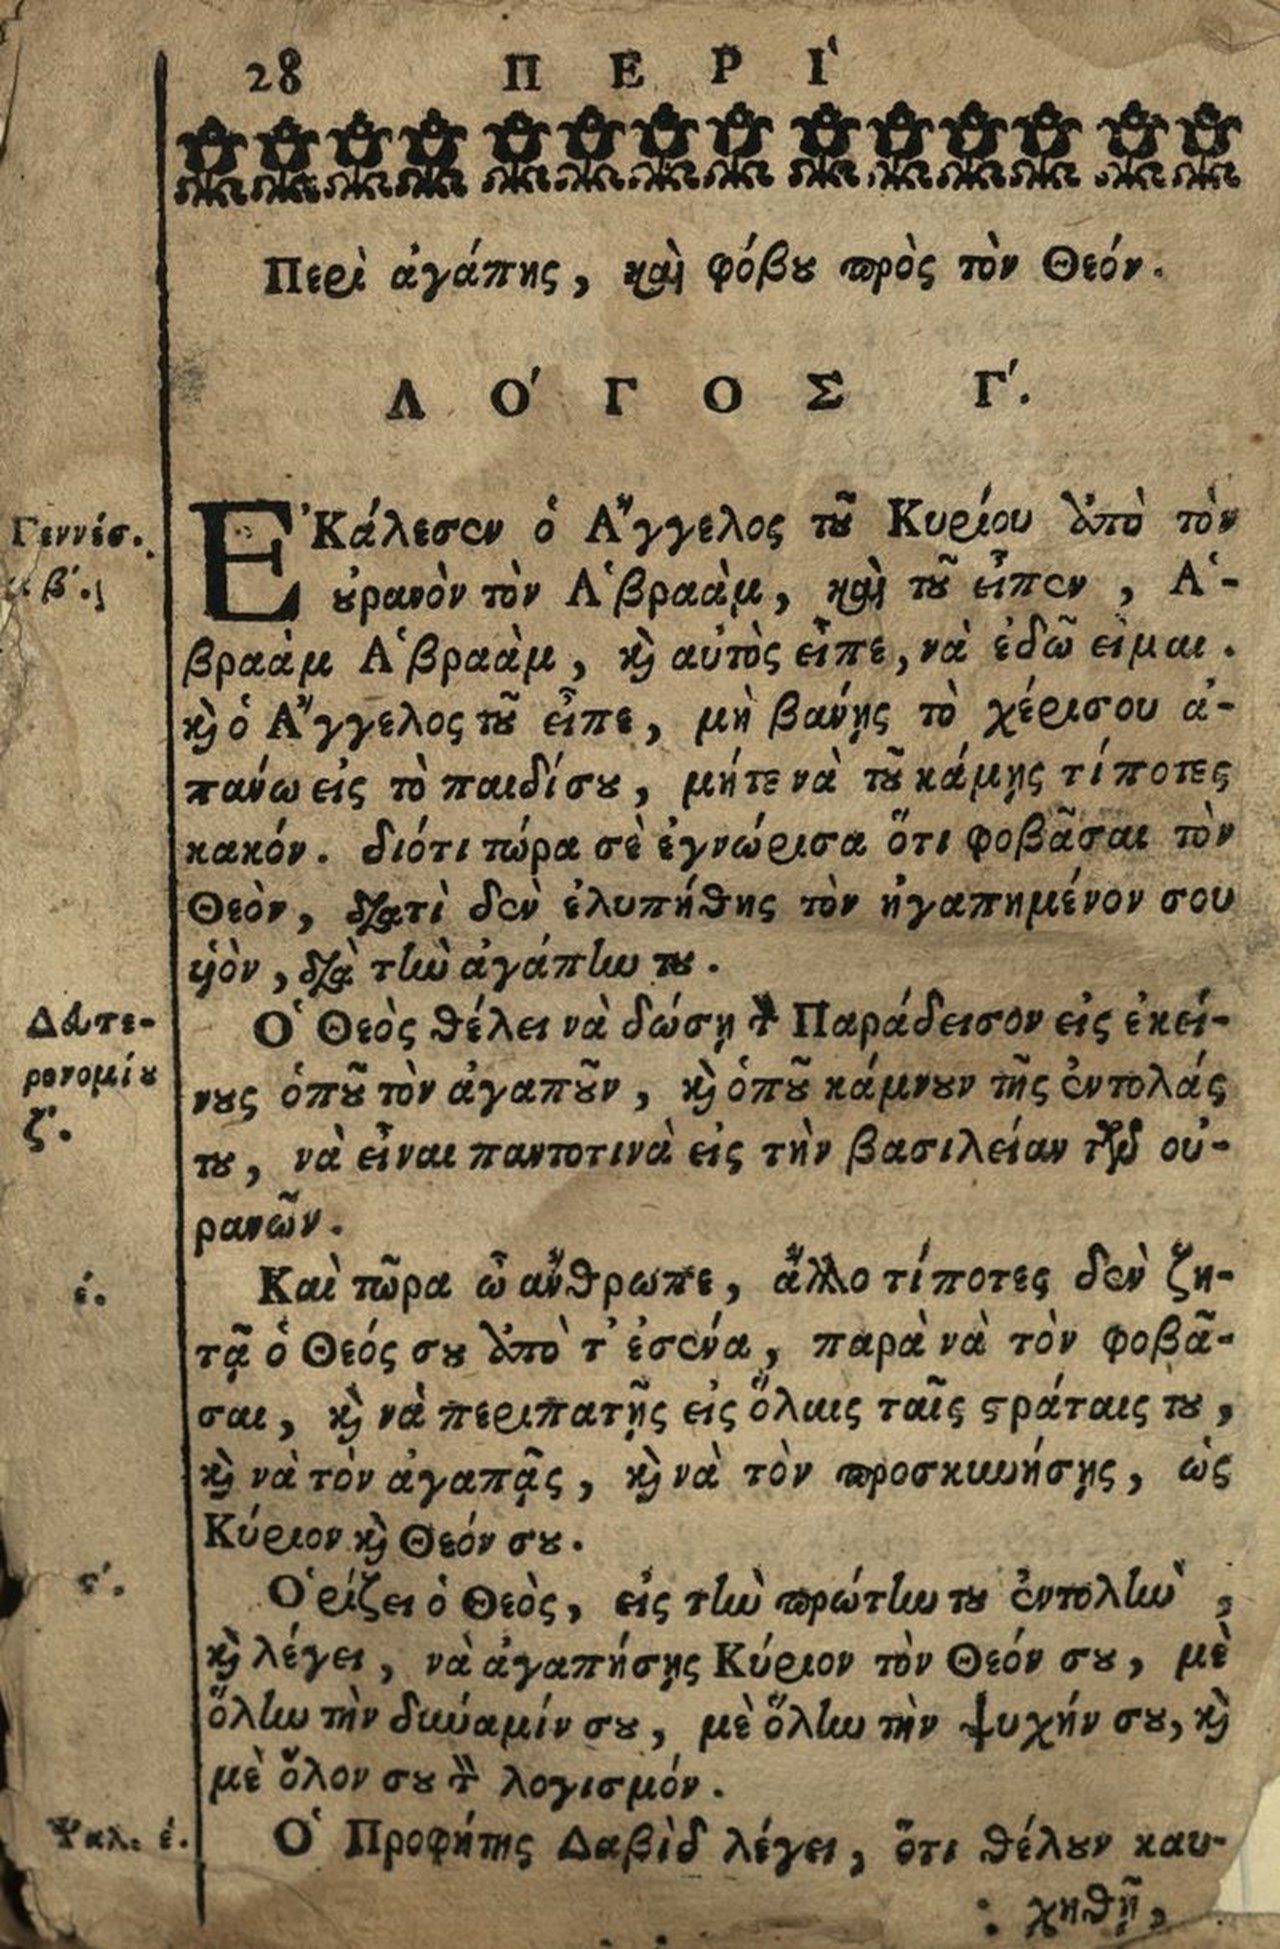 28 ΠΕΡῚ
Περὶ ἀγάπης, καὶ φόβȣ πρὸς τὸν Θεόν.
ΛΌΓΟΣ Γ΄.
Γεννέσ. κβ΄.
ἘΚάλεσεν ὁ Ἄγγελος τȣ͂ Κυρίου ἀπὸ τὸν
ȣ̓ρανὸν τὸν Ἁβραὰμ, καὶ τȣ͂ εἶπεν, Ἁ-
βραὰμ Ἁβραὰμ, κ̀ αὐτὸς εἶπε, νὰ ἐδῶ εἶμαι.
κ̀ ὁ Ἄγγελος τȣ͂ εἶπε, μὴ βανῃς τὸ χέρισου ἀ-
πανω εἰς τὸ παιδίσȣ, μήτε νὰ τȣ͂ κάμῃς τίποτες
κακόν. διότι τώρα σὲ ἐγνώρισα ὅτι φοβᾶσαι τὸν
Θεὸν, διατὶ δὲν ἐλυπήθης τὸν ἠγαπημένον σου
ὑὸν, διὰ τὴν ἀγάπην τȣ.
Δευτε-
ρονομίȣ
ζ΄.
Ὁ Θεὸς θέλει νὰ δώσῃ τὸν Παράδεισον εἰς ἐκεί-
νȣς ὁπȣ͂ τὸν ἀγαπȣ͂ν, κ̀ ὁπȣ͂ κάμνȣν τῆς ἐντολάς
τȣ, νὰ εἶναι παντοτινὰ εἰς τὴν βασιλείαν τῶν οὐ-
ρανῶν.
έ.
Καὶ τῶρα ὦ ἄνθρωπε, ἄλλο τίποτες δὲν ζη-
τᾷ ὁ Θεός σȣ ἀπὸ τ' ἐσένα, παρὰ νὰ τὸν φοβᾶ-
σαι, κ̀ νὰ περιπατῇς εἰς ὅλαις ταῖς ϛράταις τȣ,
κ̀ νὰ τὸν ἀγαπᾷς, κ̀ νὰ τὸν προσκυνήσῃς, ὡς
Κύριον κ̀ Θεόν σȣ.
ϛ΄.
Ὁρίζει ὁ Θεὸς, εἰς τὴν πρώτην τȣ ἐντολὴν,
κ̀ λέγει, νὰ ἀγαπήσῃς Κύριον τὸν Θεόν σȣ, μὲ
ὅλην τὴν δυύαμίν σȣ, μὲ ὅλην τὴν ψυχήν σȣ, κ̀
μὲ ὅλον σȣ τὸν λογισμόν.
Ψαλ. έ.
Ὁ Προφήτης Δαβὶδ λέγει, ὅτι θέλȣν καυ-
χηθῇ,